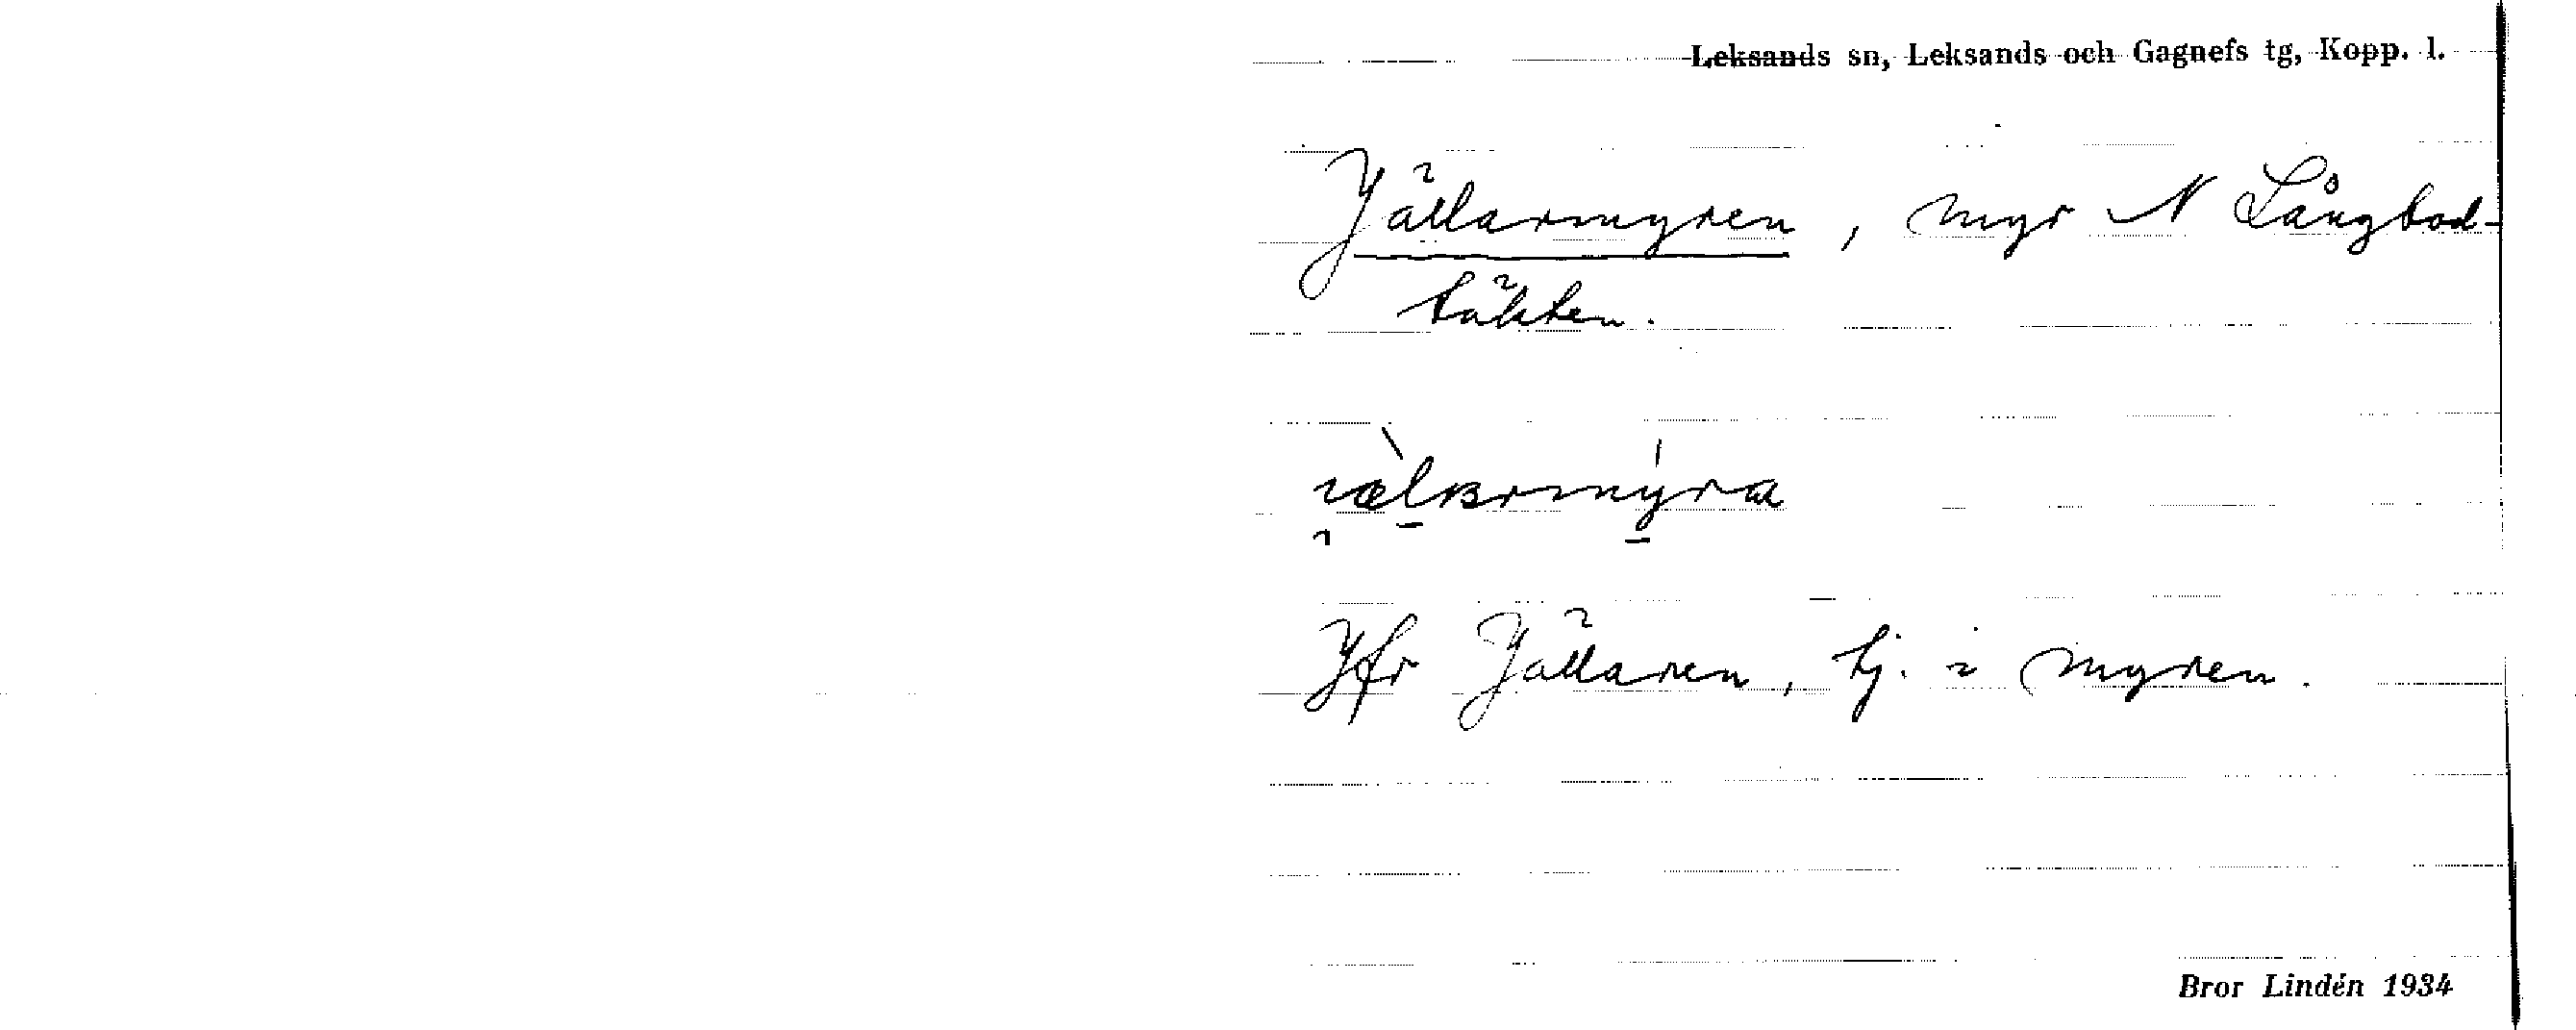 Leksands sn, Leksands och Gagnefs tg, Kopp. l.
Jällarmyren, myr N Långbod-
täkten.
Jfr Jällaren, tj. i myren.
Bror Lindén 1934